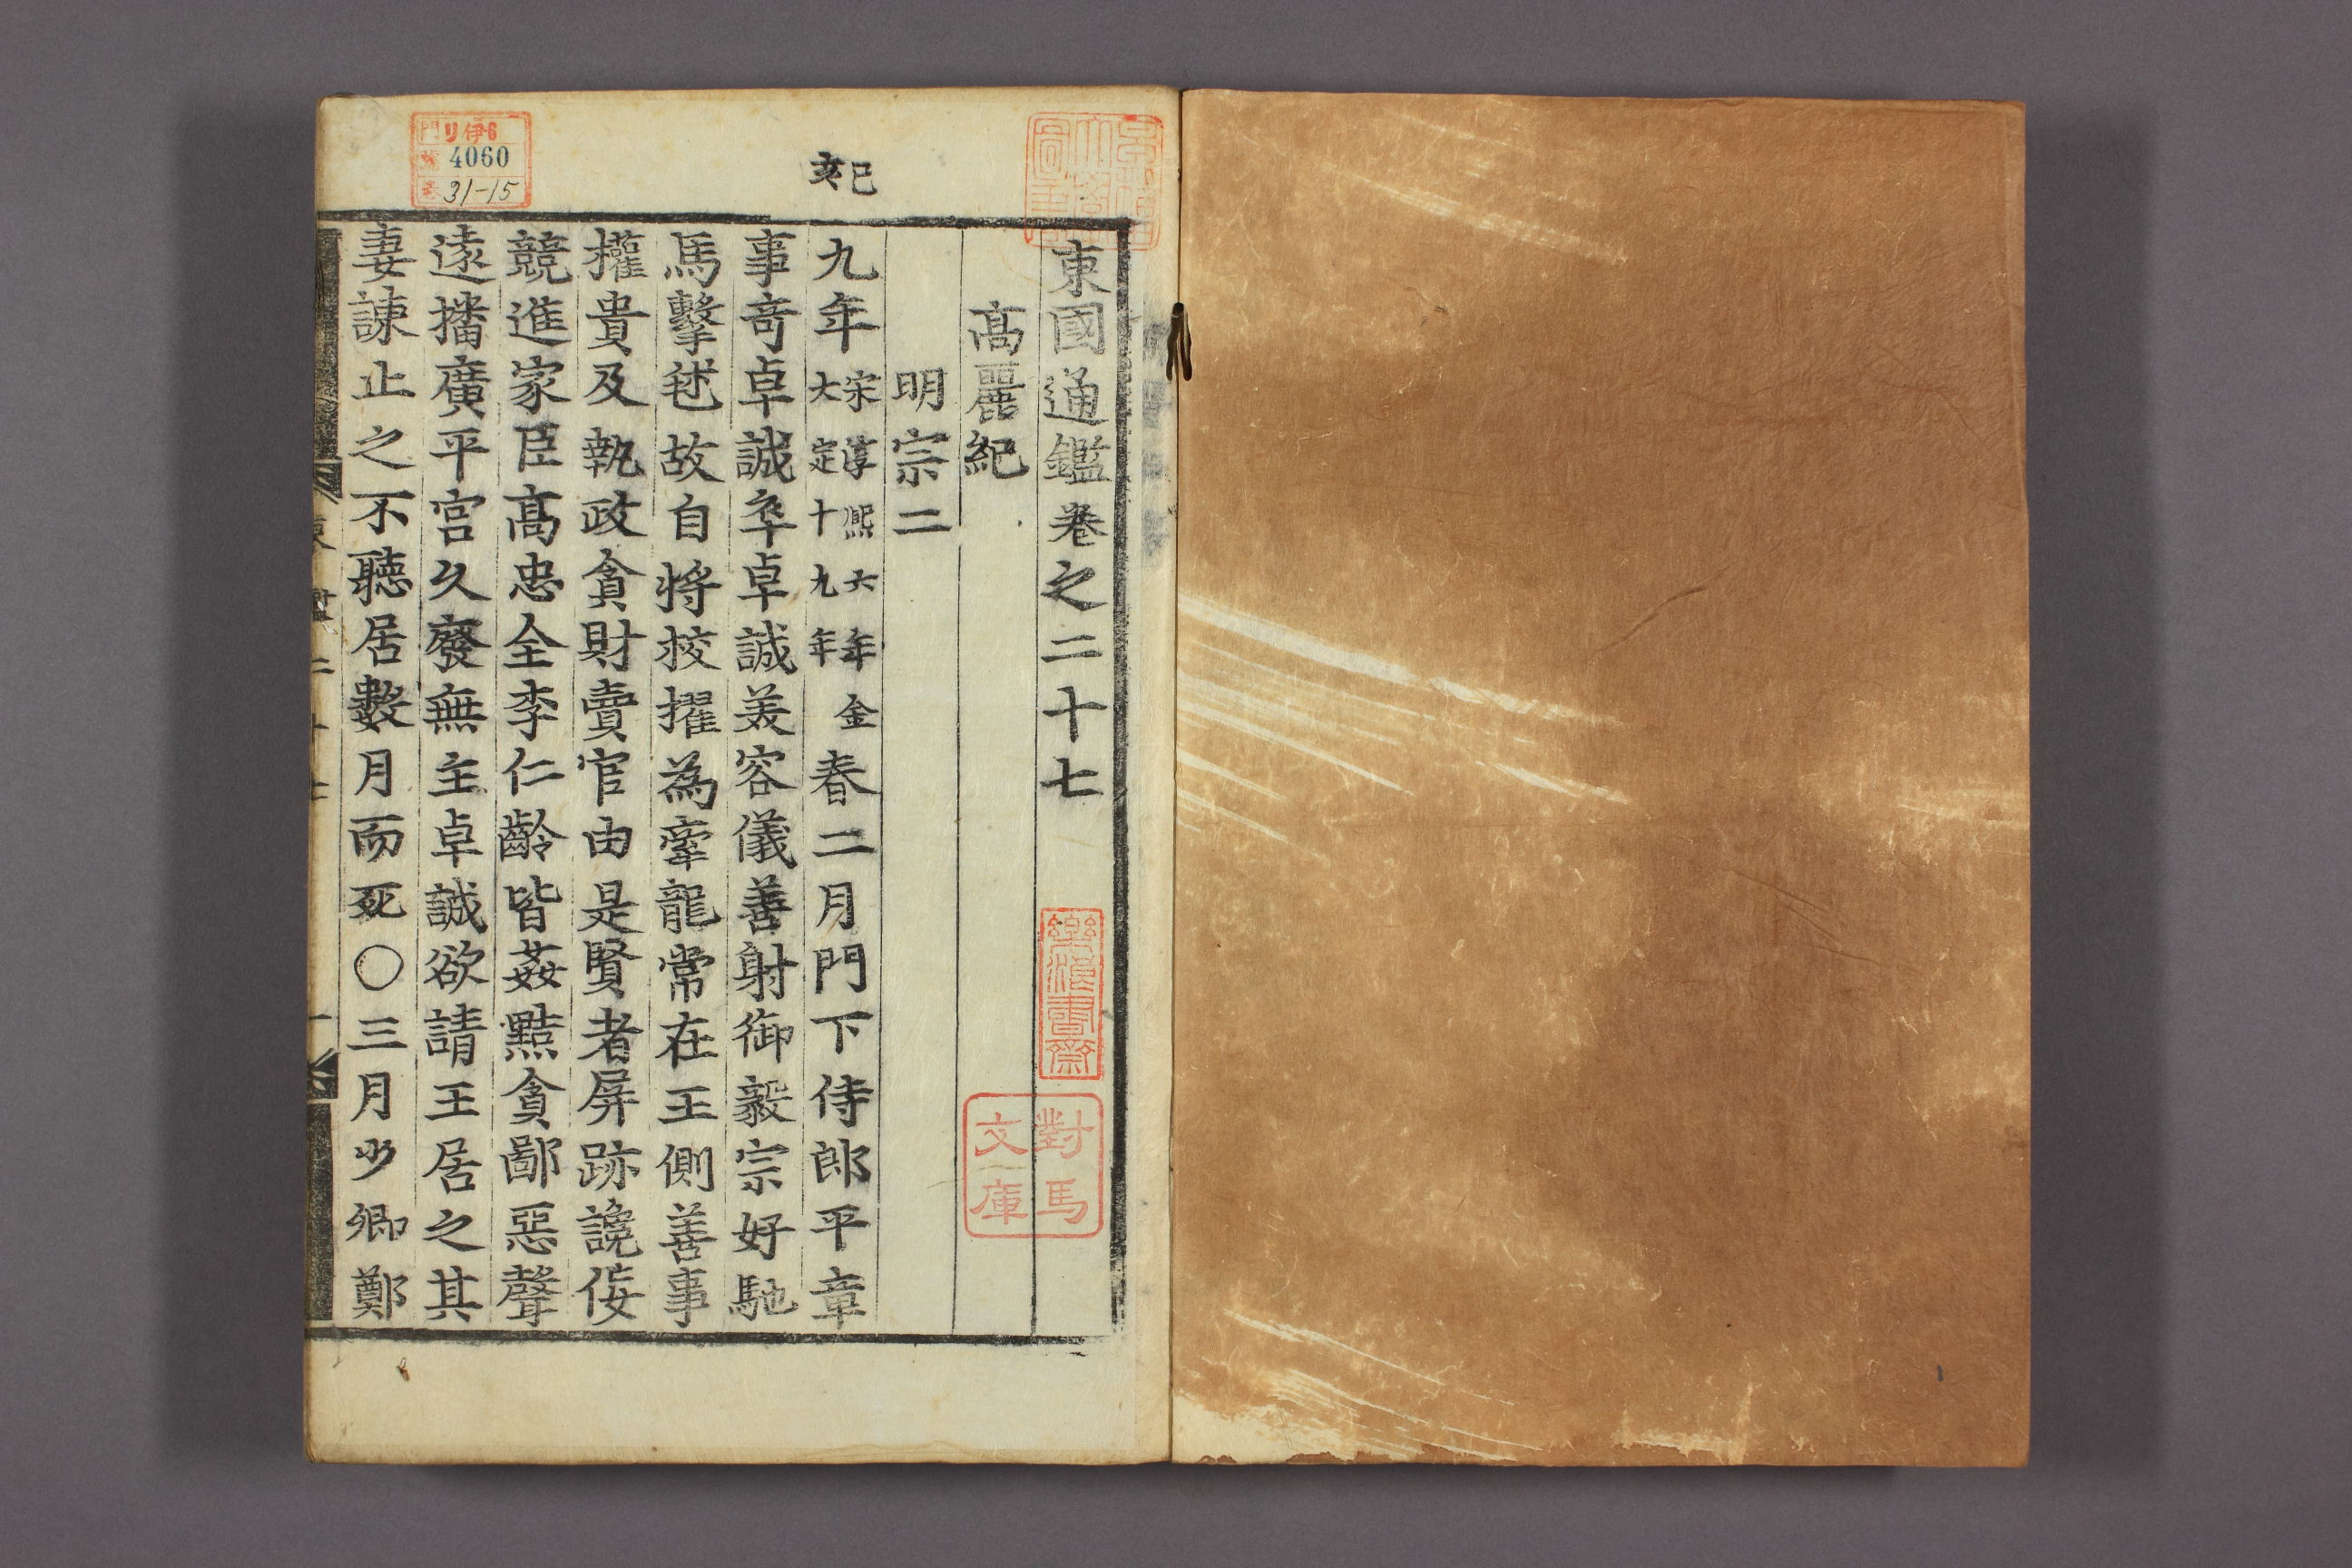 東國通鑑卷之二十七
高麗紀
明宗二
己亥
九年宋淳熙六年金大定十九年春二月門下侍郎平章
事奇卓誠卒卓誠美容儀善射御毅宗好馳
馬擊毬故自將校擢為牽龍常在王側善事
權貴及執政貪財賣官由是賢者屏跡讒侫
競進家臣高忠全李仁齡皆姦黠貪鄙惡聲
遠播廣平宮久廢無主卓誠欲請王居之其
妻諫止之不聽居數月而死○三月少卿鄭
樂浪書齋
對馬文庫
門 リ伊6
號 4060
卷 31-15